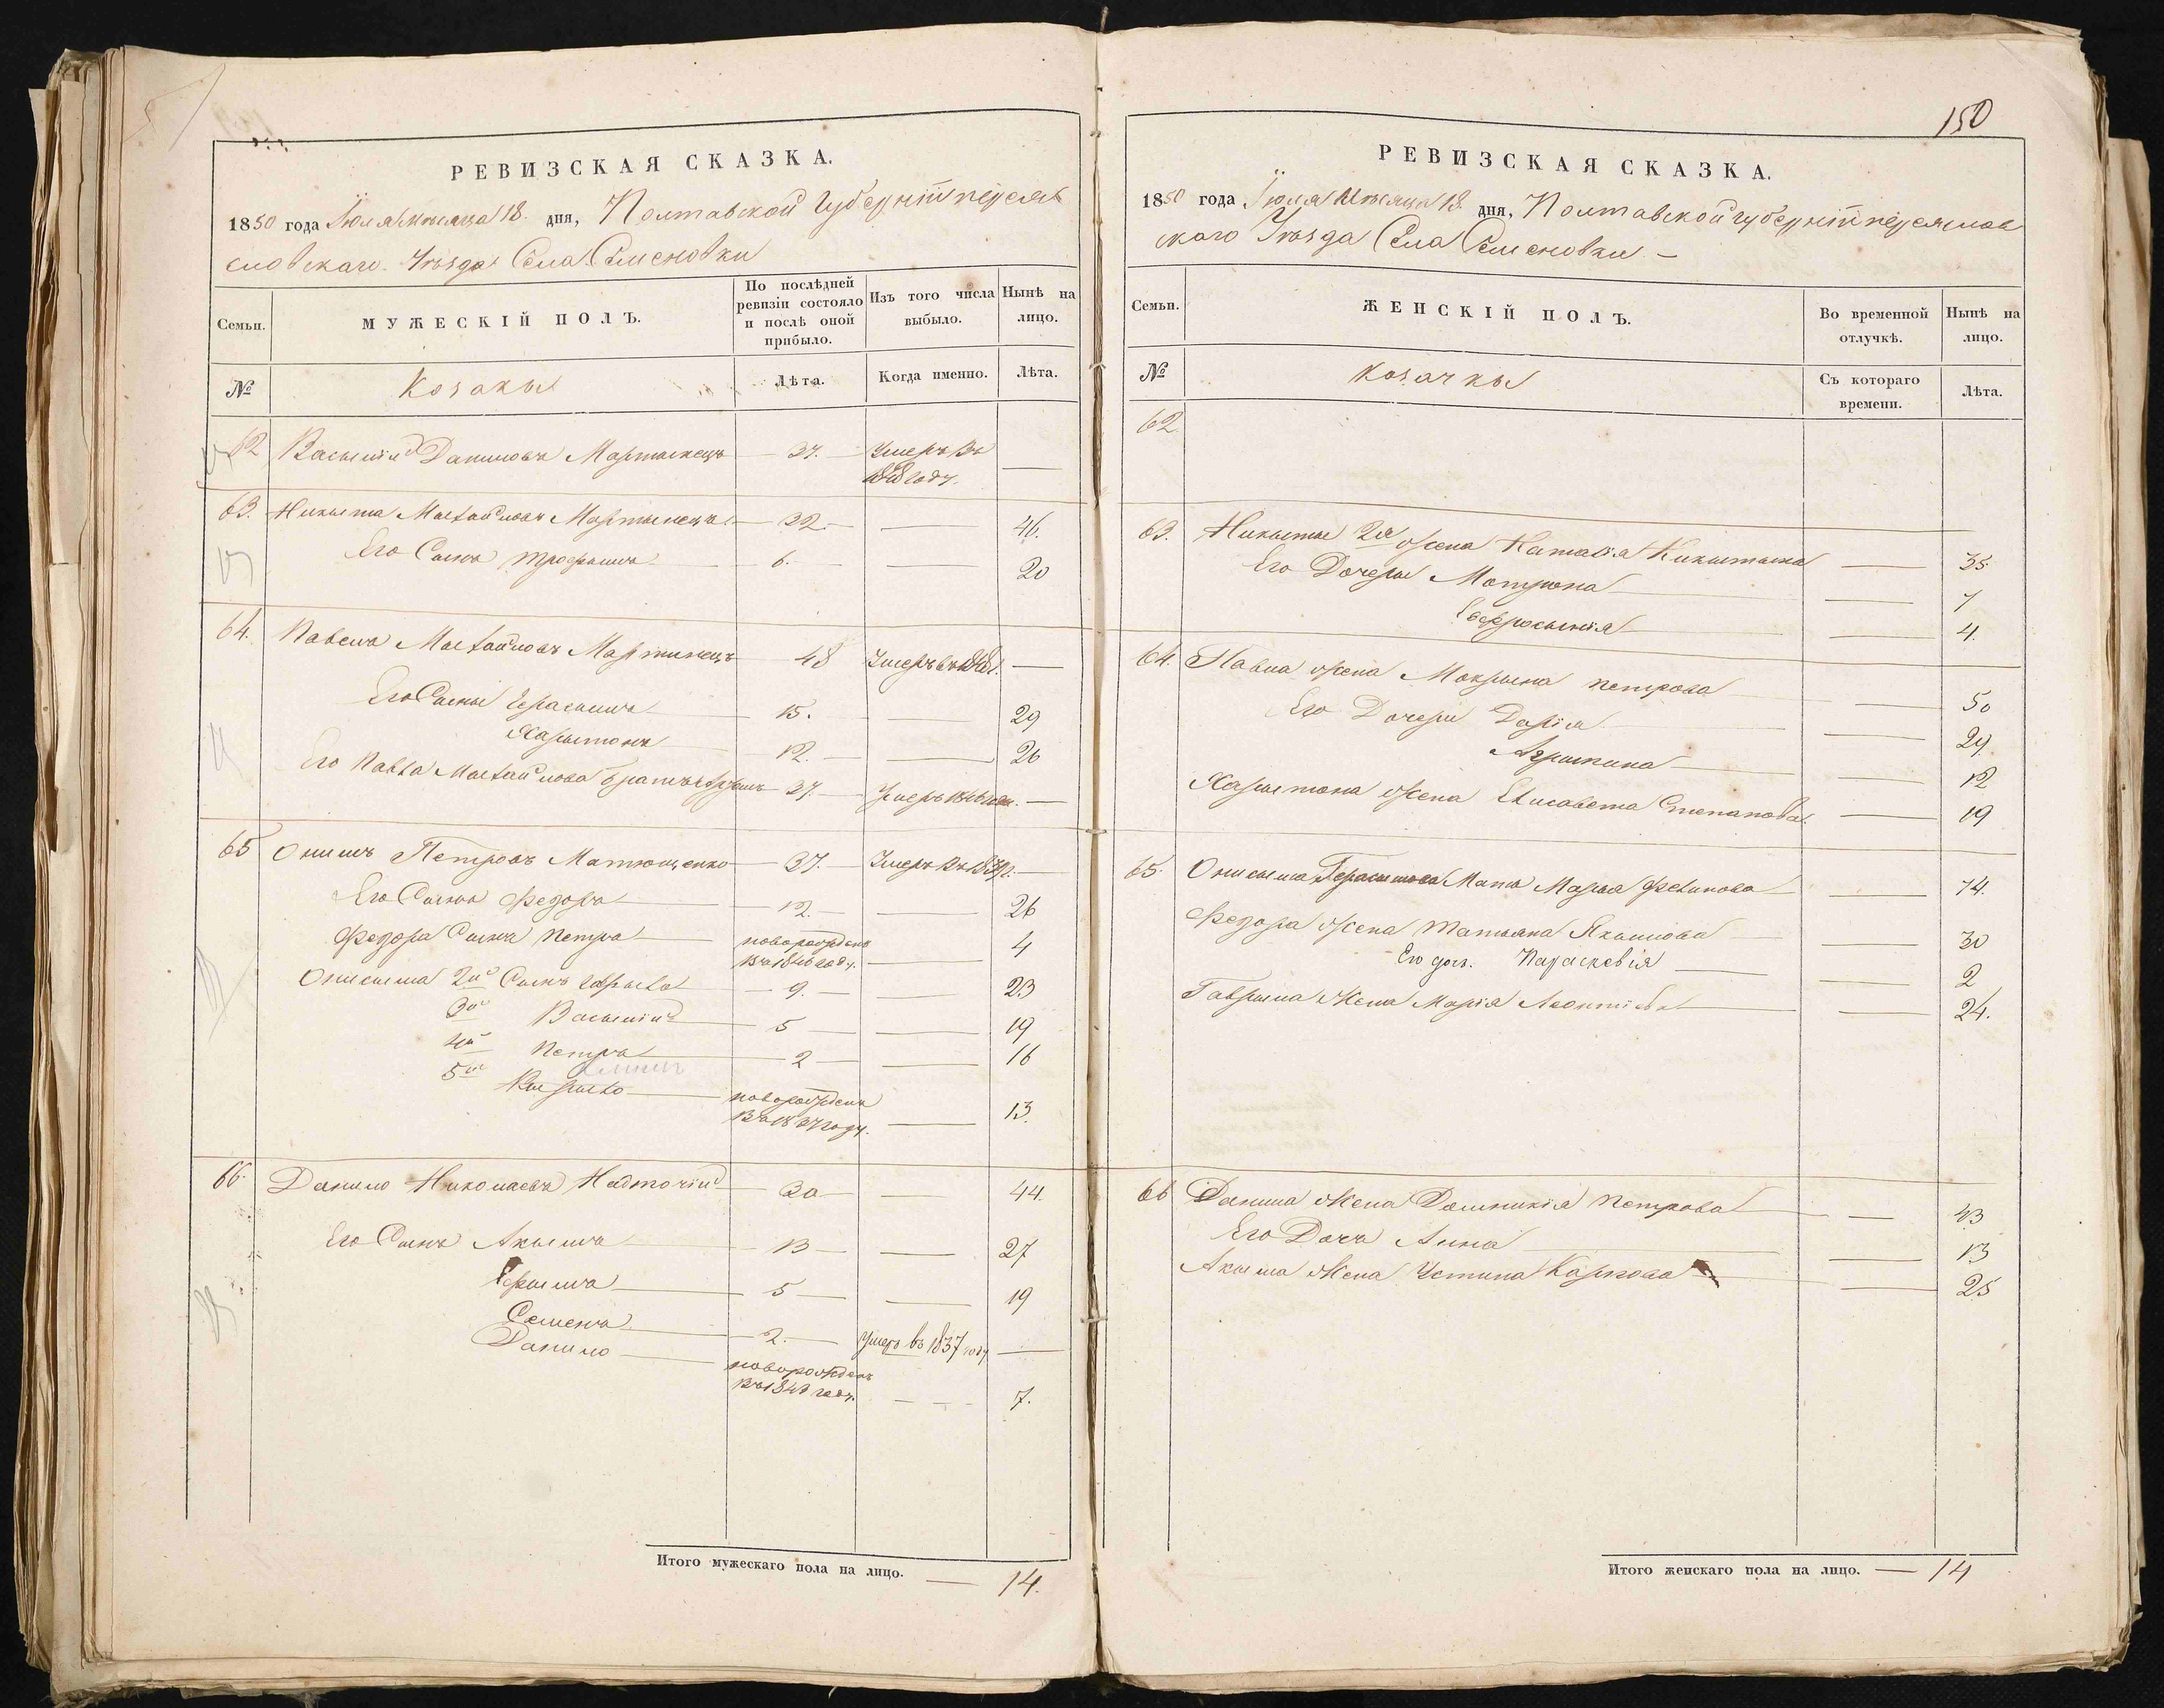 РЕВИЗСКАЯ СКАЗКА.
1850 года Іюля мѣсяца 18 дня, Полтавской Губерніи переяс
словскаго Уѣзда Села Семеновки
Семьи.
МУЖЕСКІЙ ПОЛЪ.
По послѣдней ревизіи состояло и послѣ оной прибыло.
Изъ того числа выбыло.
Нынѣ на лицо.
№
Козакы
Лѣта.
Когда именно.
Лѣта.
62 Василій Даниловъ Мартынецъ 37. Умеръ Въ
1848 году.
63. Никыта Михайловъ Мартынецъ 32. 46.
Его Сынъ Трофымъ 6. 20
64. Павелъ Михайловъ Мартинецъ 48 Умеръ въ 1848 г.
Его Сыны Герасымъ 15. 29
Харытонъ 12. 26
Его Павла Михайлова братъ 27. Умеръ 1846 года.
65 Онисимъ Петровъ Матющенко 37. Умеръ Въ
Его Сынъ Федоръ 12. 26
Федора Сынъ Петръ новорожденъ 4
въ 1846 году.
Онисыма 2й Сынъ Гаврыло 9. 23
3й Василій 5 19
4й Петръ 2 16
5й Кырыло новорожденъ 13.
Въ 1837 году.
66. Данило Николаевъ Надточій 30 44.
Его Сынъ Акымъ 13 27
Ефымъ 5 19
Семенъ 2. Умеръ въ 1837 году
Данило новорожденъ
Въ 1843 году. 7.
Итого мужескаго пола на лицо. 14.
150
РЕВИЗСКАЯ СКАЗКА.
1850 года Іюля Мѣсяца 18 дня, Полтавской губерніи переяслов
ского Уѣзда Села Семеновки
Семьи.
ЖЕНСКІЙ ПОЛЪ.
Во временной отлучкѣ.
Нынѣ на лицо.
№
козачкы
Съ котораго времени.
Лѣта.
62
63. Никыты 2я жена Наталія Никытына 35.
Его Дочеры Мотрона 7
Евфросынія 4.
64. Павла жена Мокрына петрова 50
Его Дочери Дарія 29.
12
Харытона жена Елисавета Степанова 19
65. Онисыма Мать Марья 74.
Федора жена Татьяна Якымова 30
Его доч. Параскевія 2
Гаврыла Жена Марія Леонтіева 24.
66 Данила Жена Домникія петрова 43
Его Дочь Анна 13
Акыма Жена Устина Карпова 25
Итого женскаго пола на лицо. 14